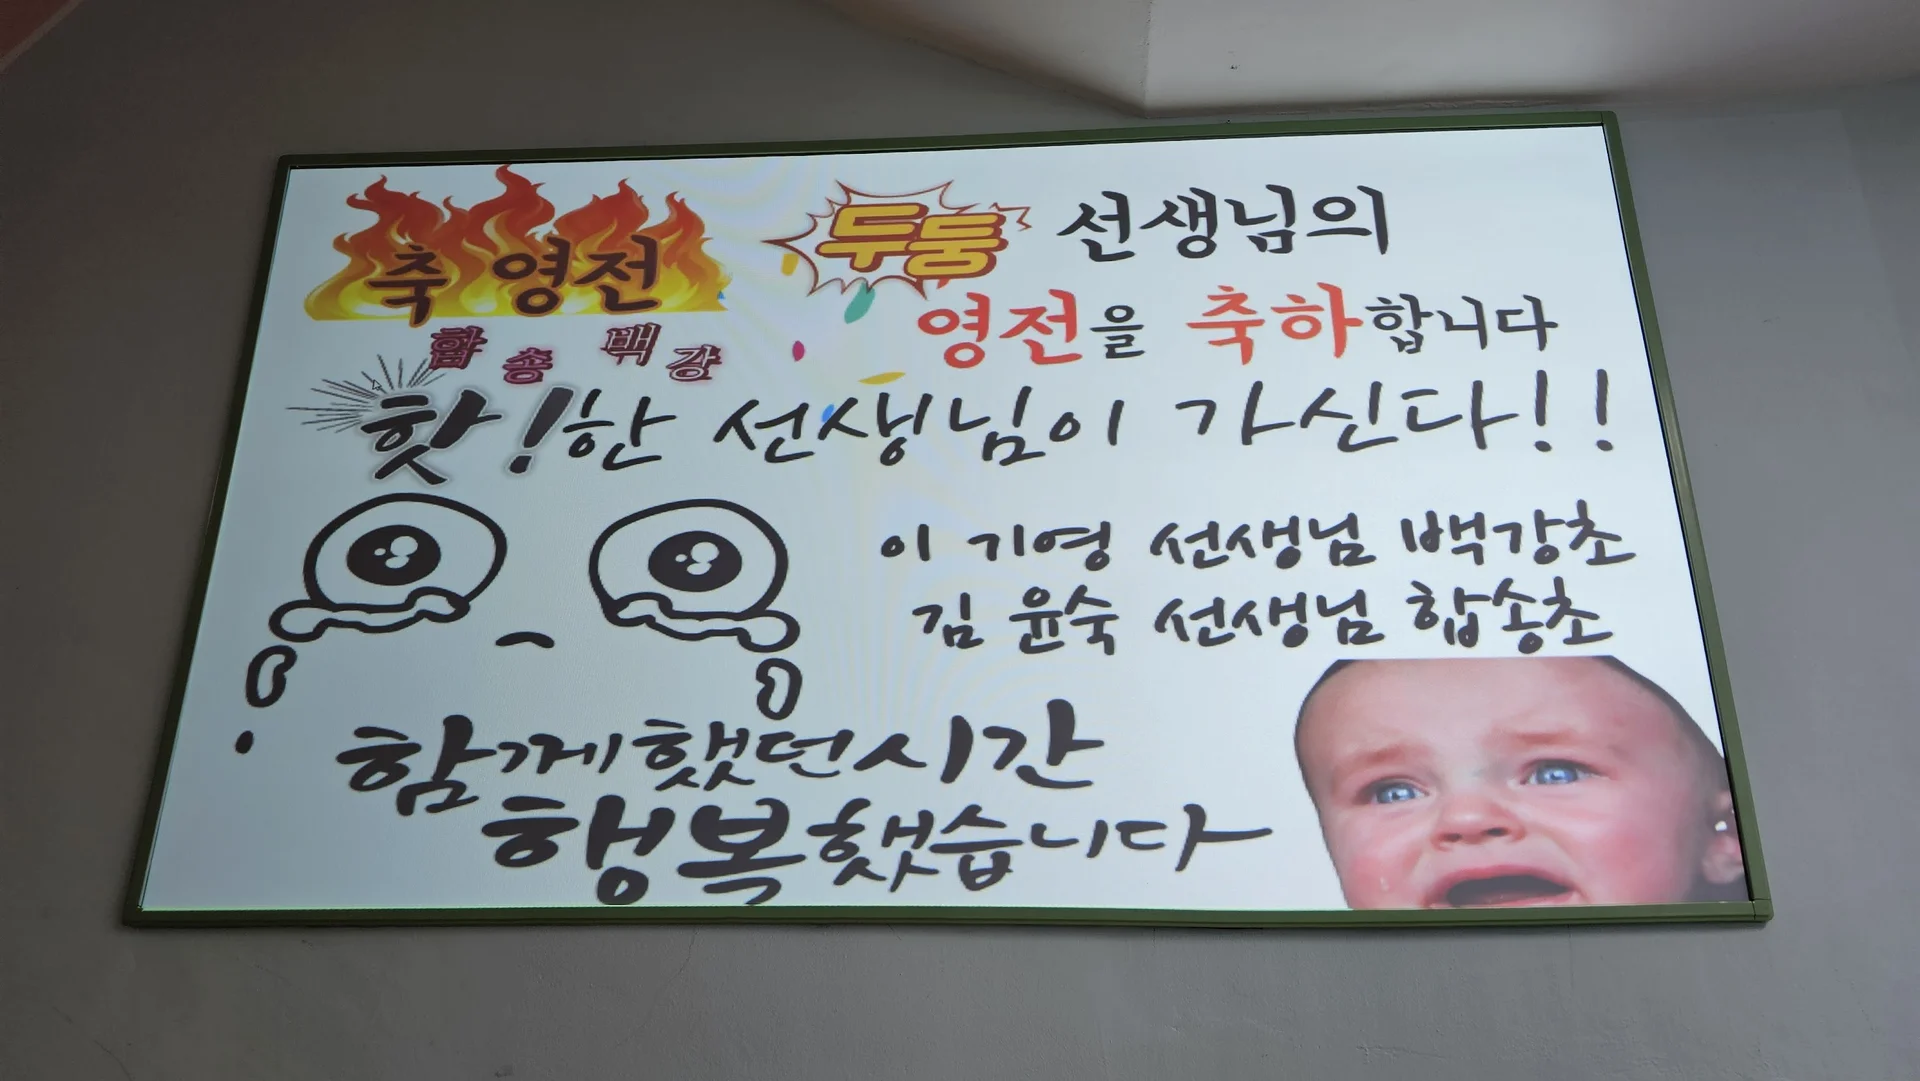 축 영전
두둥 선생님의
영전을 축하합니다
합송 백강
핫!한 선생님이 가신다!!
이 기영 선생님 백강초
김 윤숙 선생님 합송초
함께했던시간
행복했습니다